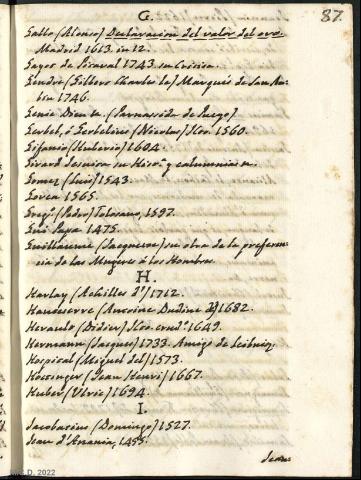 G.
87.
Gallo (Alonso) Declaracion del valor del oro.
Madrid 1613. in 12.
Gayot de Pitaval 1743. in Crisia.
Gendre (Gilbert Charles le) Marqués de San Au-
bin 1746.
Genie Dieu te. (Parnassida de Juego)
Gerbel, ó Gerbelius (Nicolas) flor. 1560.
Gifanio (Huberto) 1604
Girard Jesuita su Hist.ª y calumnias &.
Gomez (Luis) 1543.
Govea 1565.
Greg.º (Pedro) Tolosano, 1597.
Gui Papa 1475.
Guillaume (Jacquette) su obra de la preferen-
cia de las Mugeres á los Hombres.
H.
Harlay (Achilles d') 1712.
Hauteserre (Antoine Dadine d') 1682.
Herault (Didier) flor. erud.º 1649.
Hermann (Jacques) 1733. Amigo de Leibniz.
Hospital (Miguel del) 1573.
Hottinger (Jean Henri) 1667.
Huber (Ulric) 1694.
I.
Jacobatius (Domingo) 1527.
Jean d'Anania, 1455.
Jean
D. 2022